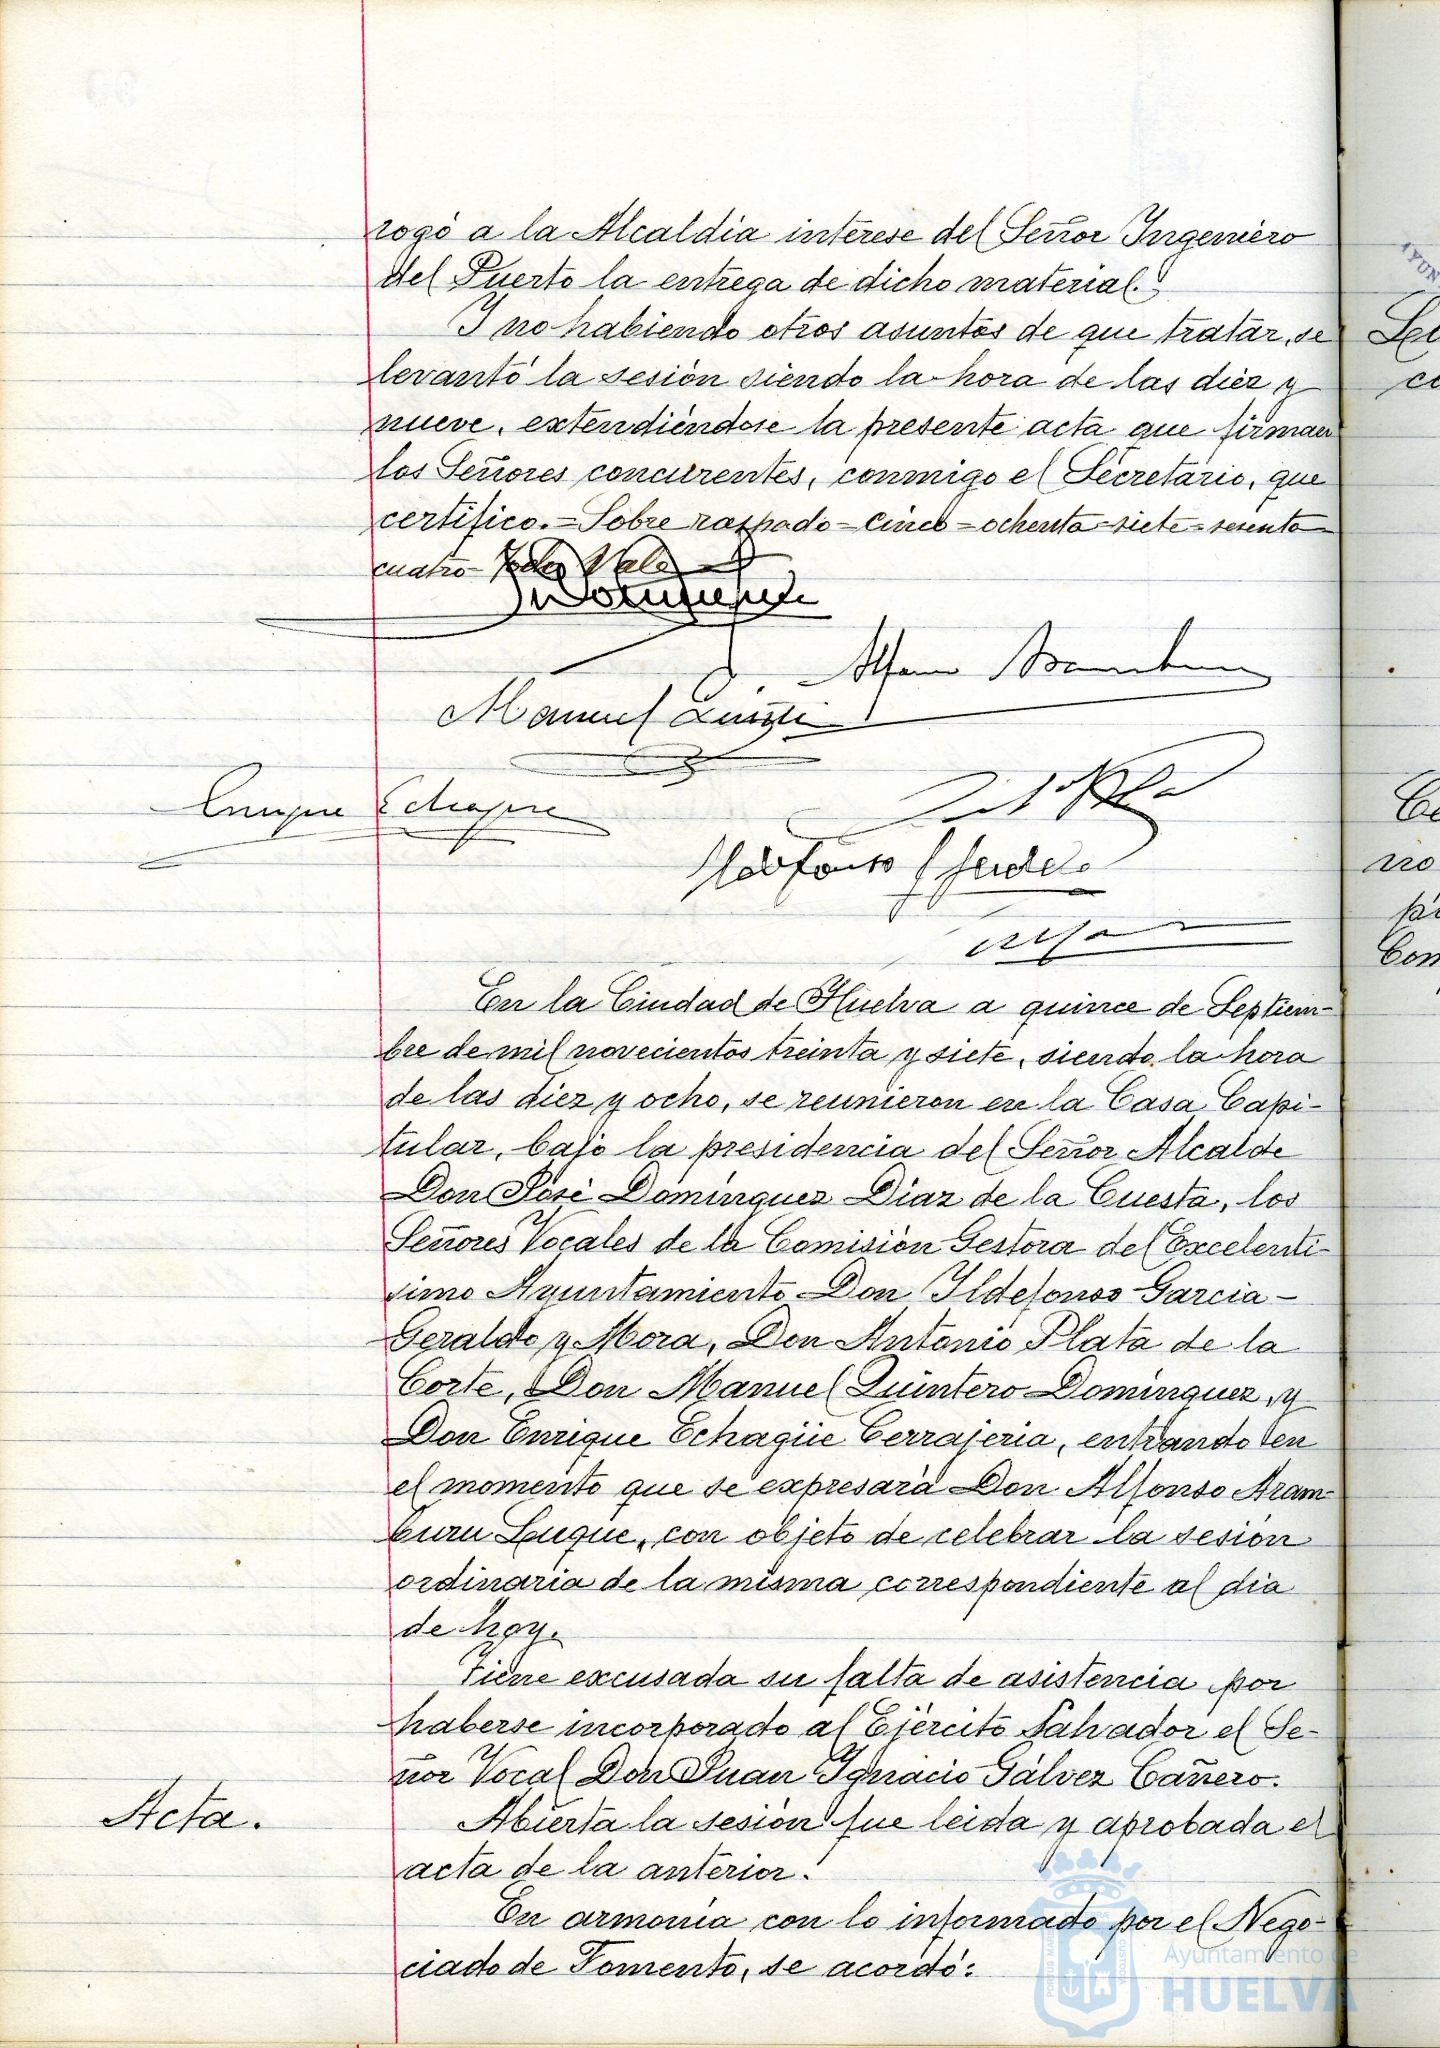 rogó a la Alcaldia interese del Señor Ingeniero
del Puerto la entrega de dicho material.
Y no habiendo otros asuntos de que tratar, se
levantó la sesión siendo la hora de las diez y
nueve, extendiéndose la presente acta que firman
los Señores concurentes, conmigo el Secretario, que
certifico.=Sobre raspado=cinco=ochenta=siete=sesenta
cuatro= Vale
Manuel
Enrique Echague
Ildefonso
En la Ciudad de Huelva a quince de Septiem-
bre de mil novecientos treinta y siete, siendo la hora
de las diez y ocho, se reunieron en la Casa Capi-
tular, bajo la presidencia del Señor Alcalde
Don José Dominguez Diaz de la Cuesta, los
Señores Vocales de la Comisión Gestora del Excelenti-
simo Ayuntamiento Don Ildefonso Garcia-
Geraldo y Mora, Don Antonio Plata de la
Corte, Don Manuel Quintero Dominguez, y
Don Enrique Echagüe Cerrajeria, entrando en
el momento que se expresará Don Alfonso Aram-
buru Luque, con objeto de celebrar la sesión
ordinaria de la misma correspondiente al dia
de hoy.
Tiene excusada su falta de asistencia por
haberse incorporado al Ejército Salvador el Se-
ñor Vocal Don Juan Ignacio Gálvez Cañero.
Acta.
Abierta la sesión fue leida y aprobada el
acta de la anterior.
En armonia con lo informado por el Nego-
ciado de Fomento, se acordó:
Ayuntamiento de
HUELVA